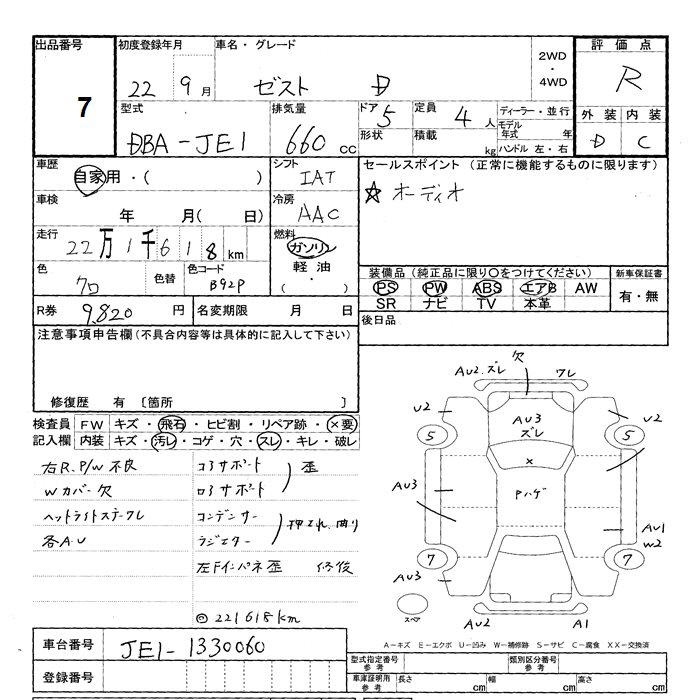 出品番号
7
初度登録年月
22 9 月
車名・グレード
ゼスト D
2WD
・
4WD
評価点
R
型式
DBA-JE1
排気量
660 cc
ドア 5
形状
定員 4 人
積載 kg
ディーラー・並行
モデル年式 年
ハンドル 左・右
外装 内装
D C
車歴
自家用・( )
シフト
IAT
セールスポイント (正常に機能するものに限ります)
☆ オーディオ
車検
年 月( 日)
冷房
AAC
走行
22万1千618 km
燃料
ガソリン
軽油
・
( )
色
クロ
色替
色コード
B92P
装備品(純正品に限り○をつけてください)
PS PW ABS エアB AW
SR ナビ TV 本革
新車保証書
有・無
R券 9,820 円
名変期限 月 日
後日品
注意事項申告欄(不具合内容等は具体的に記入して下さい)
修復歴 有 〔箇所 〕
検査員 FW キズ・飛石・ヒビ割・リペア跡・(×要)
記入欄 内装 キズ・汚レ・コゲ・穴・スレ・キレ・破レ
右R.P/W不良
Wカバー欠
ヘッドライトステークレ
各AU
コアサポート
ロアサポート
歪
コンデンサー
ラジエター
押され、曲り
左Fインパネ歪 修復
◎221618km
欠
AU2.ズレ
ワレ
U2
AU3
ズレ
U2
5
5
×
Pハゲ
AU3
AU1
W2
7
7
AU3
スペア
U2
A1
車台番号 JE1-1330060
登録番号
A-キズ E-エクボ U-凹み W-補修跡 S-サビ C-腐食 XX-交換済
型式指定番号
参考
類別区分番号
参考
車庫証明用
参考
長さ cm
幅 cm
高さ cm